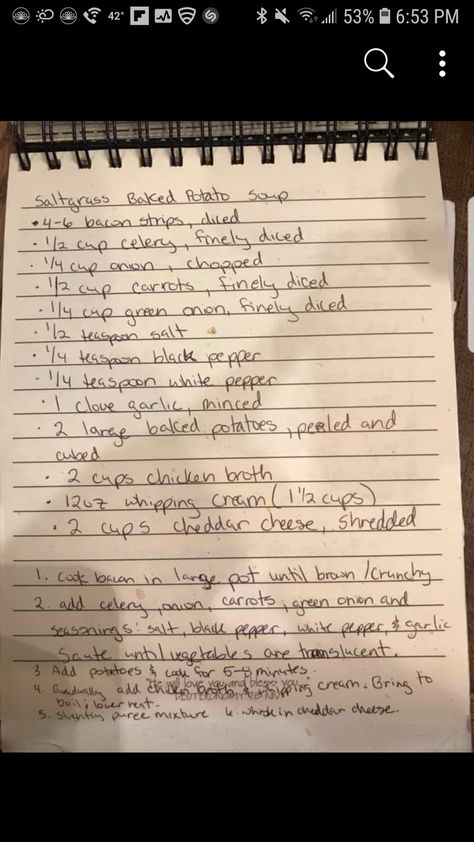 42° 53% 6:53 PM
Saltgrass Baked Potato Soup
• 4-6 bacon strips, diced
• 1/2 cup celery, finely diced
• 1/4 cup onion, chopped
• 1/2 cup carrots, finely diced
• 1/4 cup green onion, finely diced
• 1/2 teaspoon salt
• 1/4 teaspoon black pepper
• 1/4 teaspoon white pepper
• 1 clove garlic, minced
• 2 large baked potatoes, peeled and
cubed
• 2 cups chicken broth
• 12oz whipping cream (1 1/2 cups)
• 2 cups cheddar cheese, shredded
1. cook bacon in large pot until brown/crunchy
2. add celery, onion, carrots, green onion and
seasonings: salt, black pepper, white pepper, & garlic
Saute until vegetables are translucent.
3 Add potatoes & cook for 5-8 minutes.
4. Gradually add chicken broth & whipping cream. Bring to
boil; lower heat.
"He will love you and bless you
DEUTERONOMY
5. Slightly puree mixture 6. whisk in cheddar cheese.